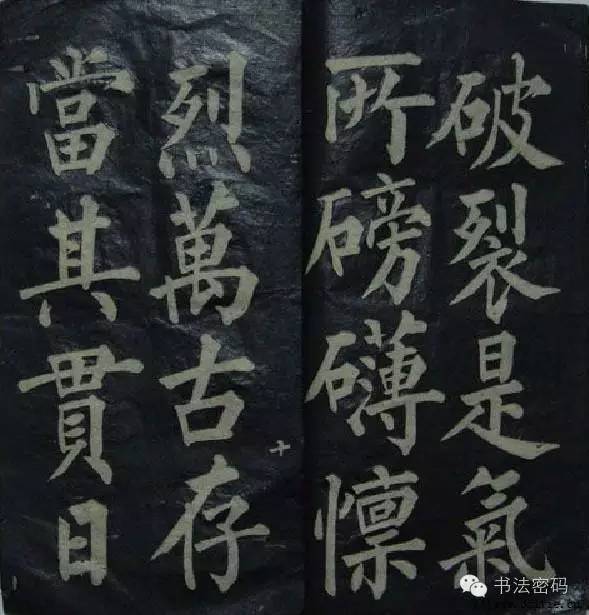 破裂是氣
所磅礴懍
烈萬古存
當其貫日
书法密码